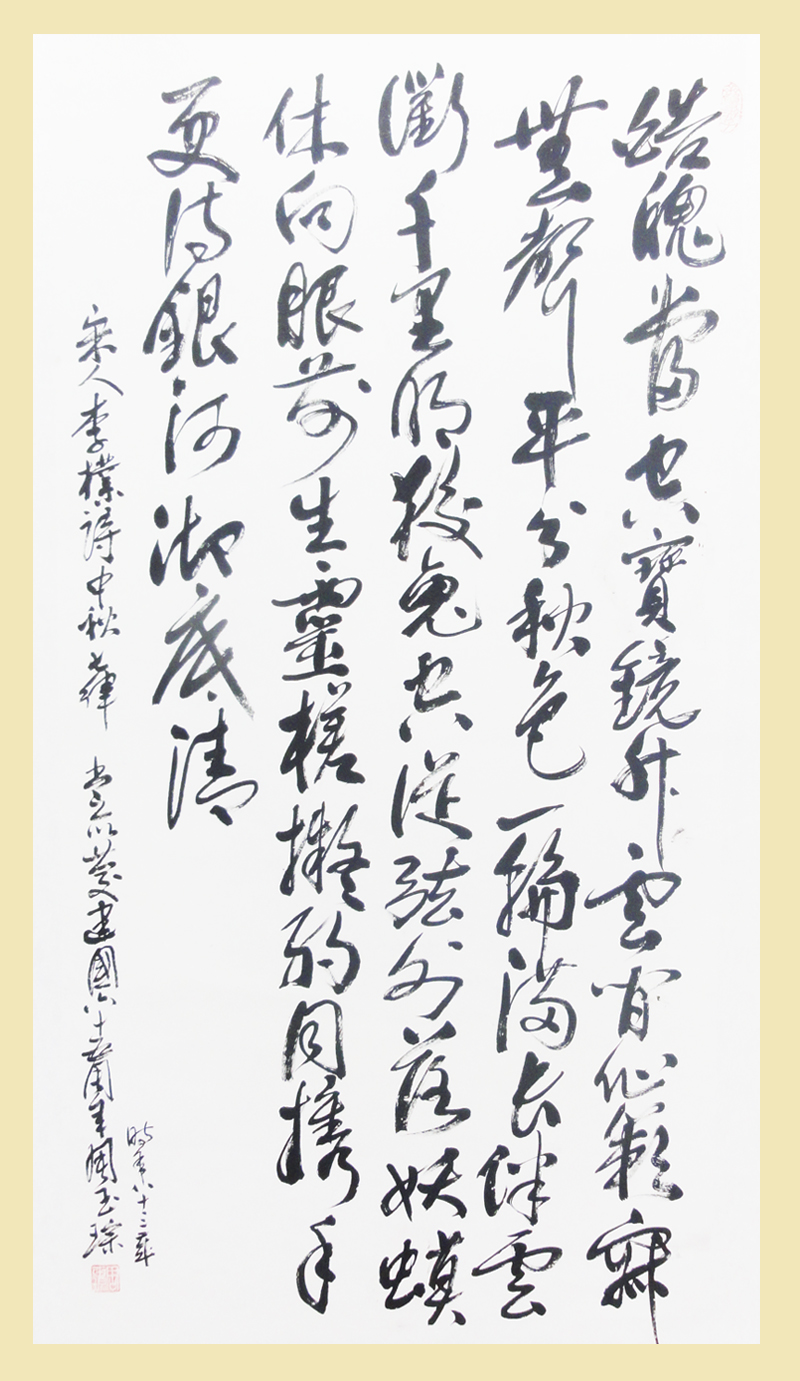 皓魄當空寶鏡升雲間仙籟寂
無聲平分秋色一輪滿長伴雲
衢千里明狡兔空從弦外落妖蟆
休向眼前生靈槎擬約同攜手
更待銀河澈底清
宋人李樸詩中秋七律 書以慶建國六十五周年周玉琮
時年八十三歲